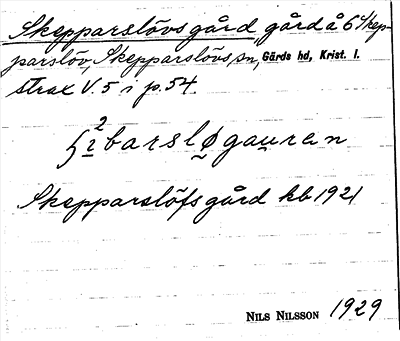 Skepparslövs gård gård å 6 Skep-
parslöv, Skepparslövs sn, Gärds hd, Krist. l.
strax V. 5 i p. 54.
barsløgauren
Skepparslöfs gård kb 1921
NILS NILSSON 1929